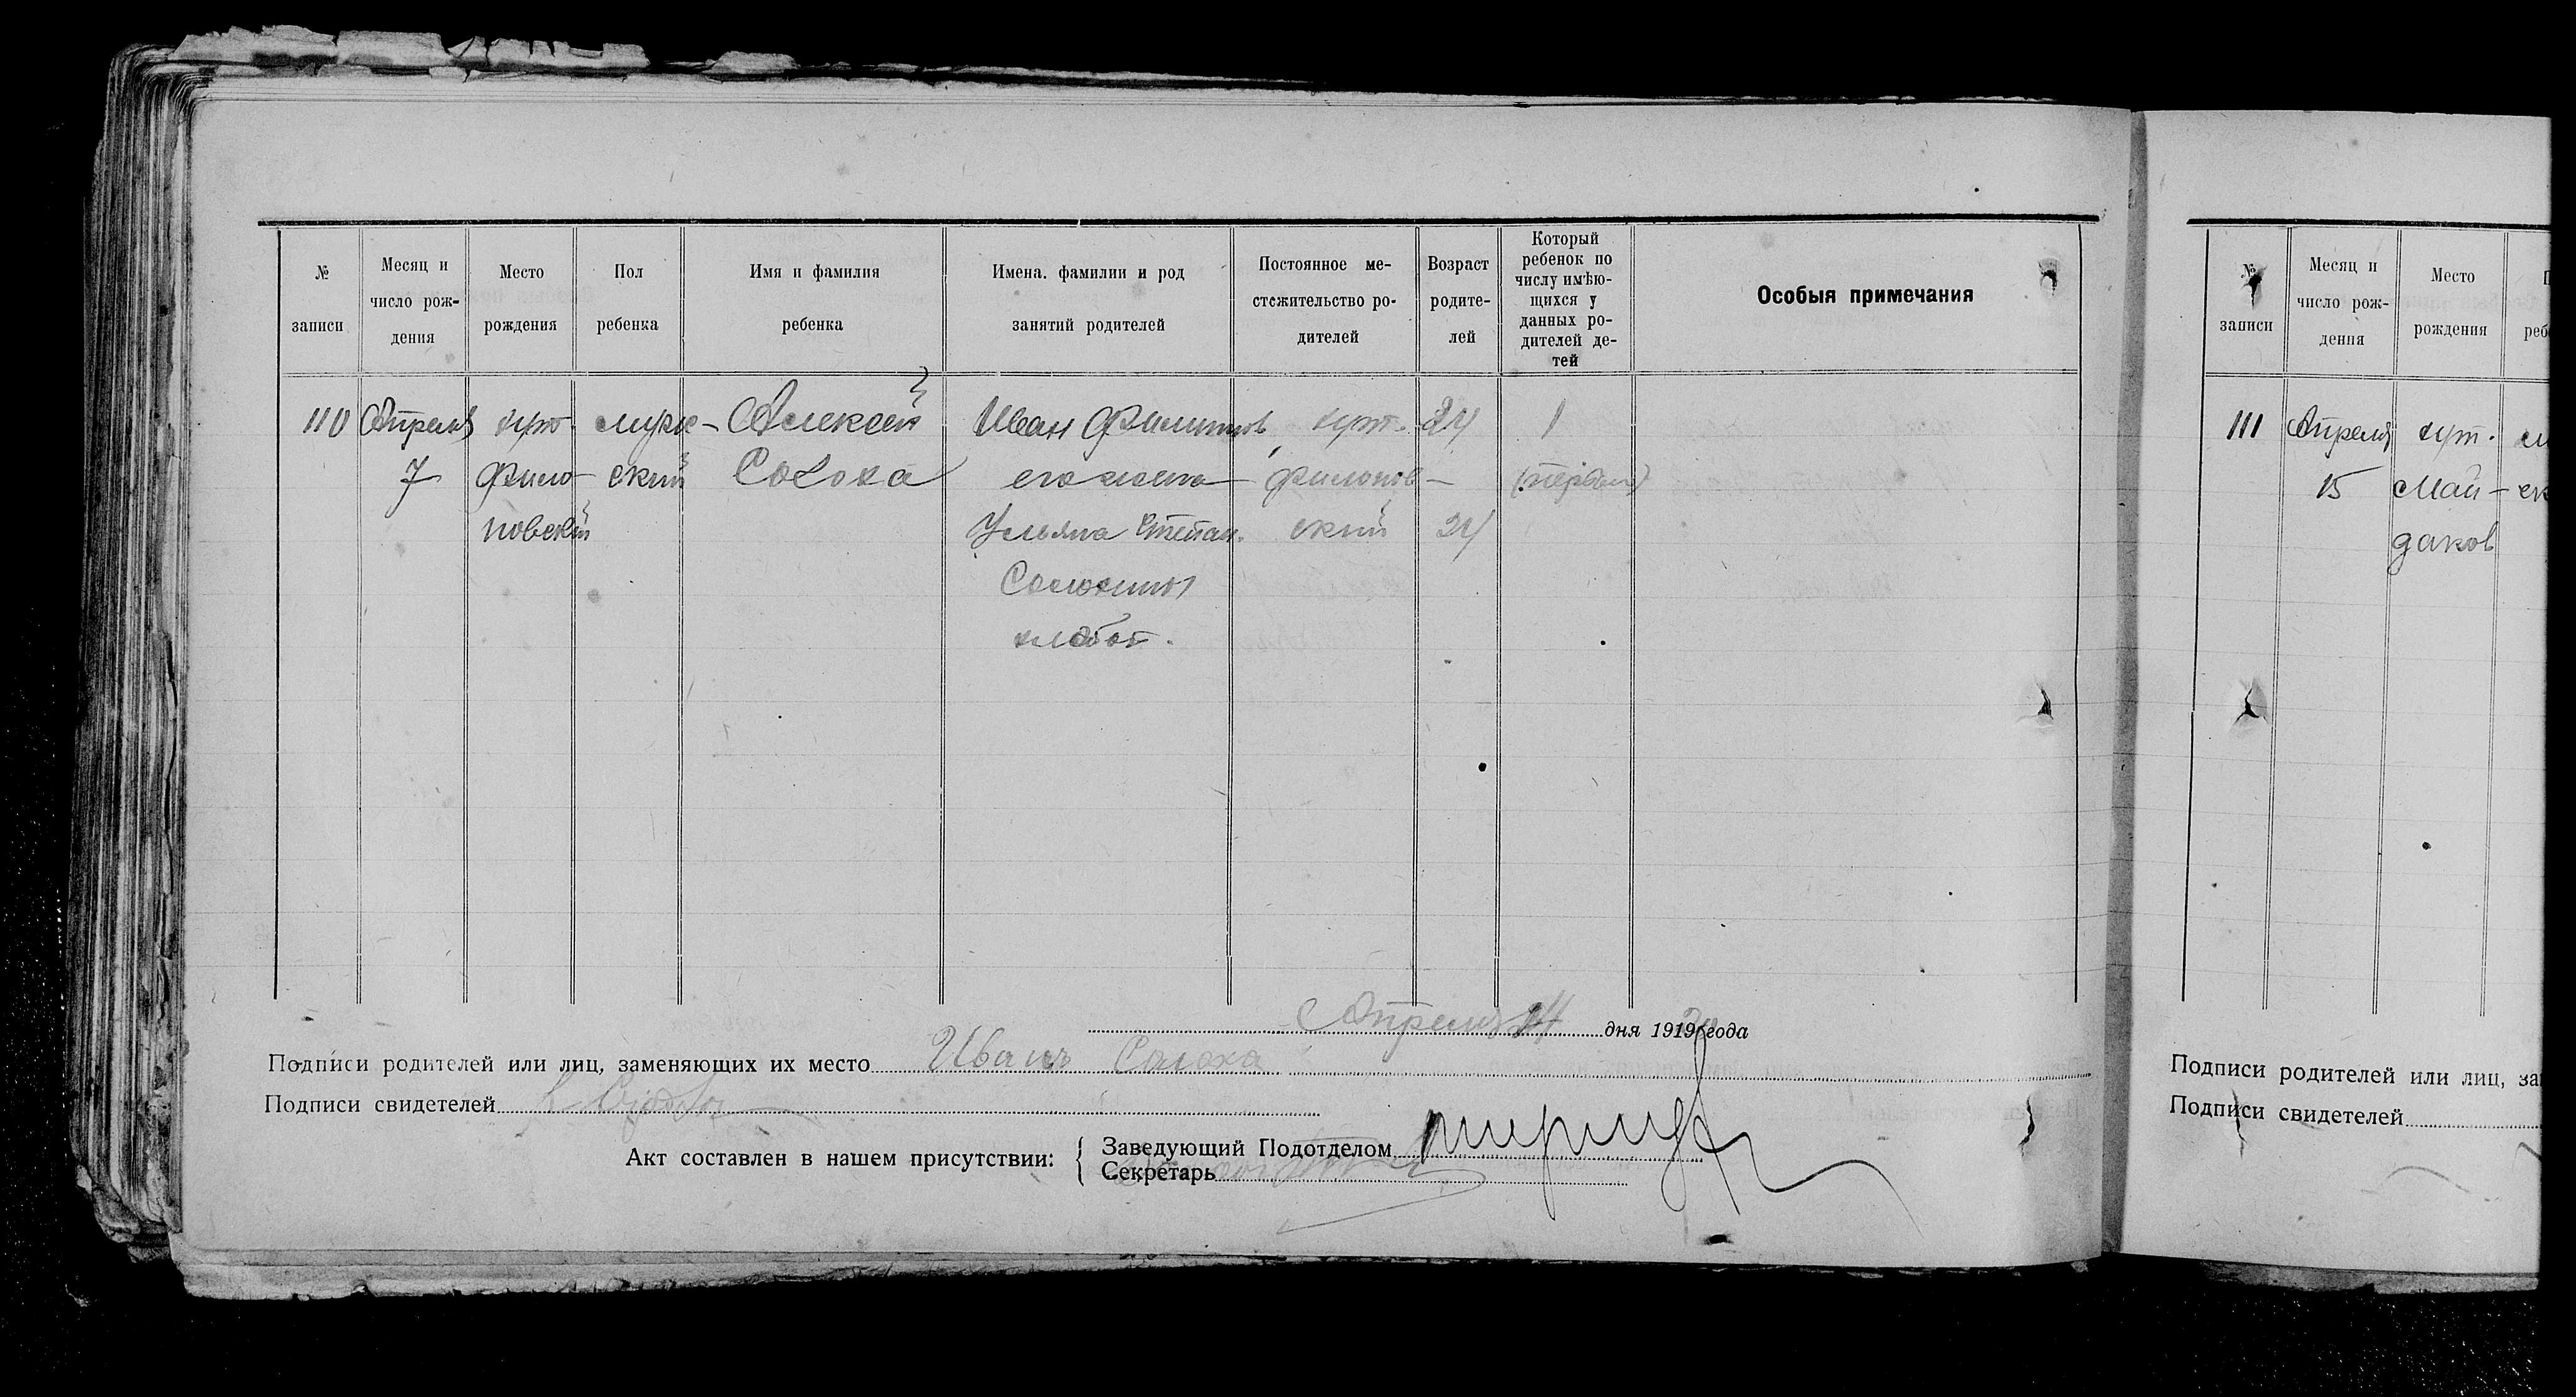 № записи
Месяц и число рождения
Место рождения
Пол ребенка
Имя и фамилия ребенка
Имена. фамилии и род занятий родителей
Постоянное местожительство родителей
Возраст родителей
Который ребенок по числу имѣющихся у данных родителей детей
Особыя примечания
110
Апреля
7
хут.
Фило-
новский
муж-
ский
Алексей
Солоха
Иван Филиппов
его жена
Ульяна Степан.
Солохины
хлебоп.
хут.
Филонов-
ский
24
24
1
(первый)
Апреля 24 дня 1919 года
Подписи родителей или лиц, заменяющих их место Иванъ Солоха
Подписи свидетелей
Акт составлен в нашем присутствии:
Заведующий Подотделом
Секретарь
№ записи
Месяц и число рож-дения
Место рождения
111
Апреля
15
хут.
Май-
даков
Подписи родителей или лиц, за
Подписи свидетелей